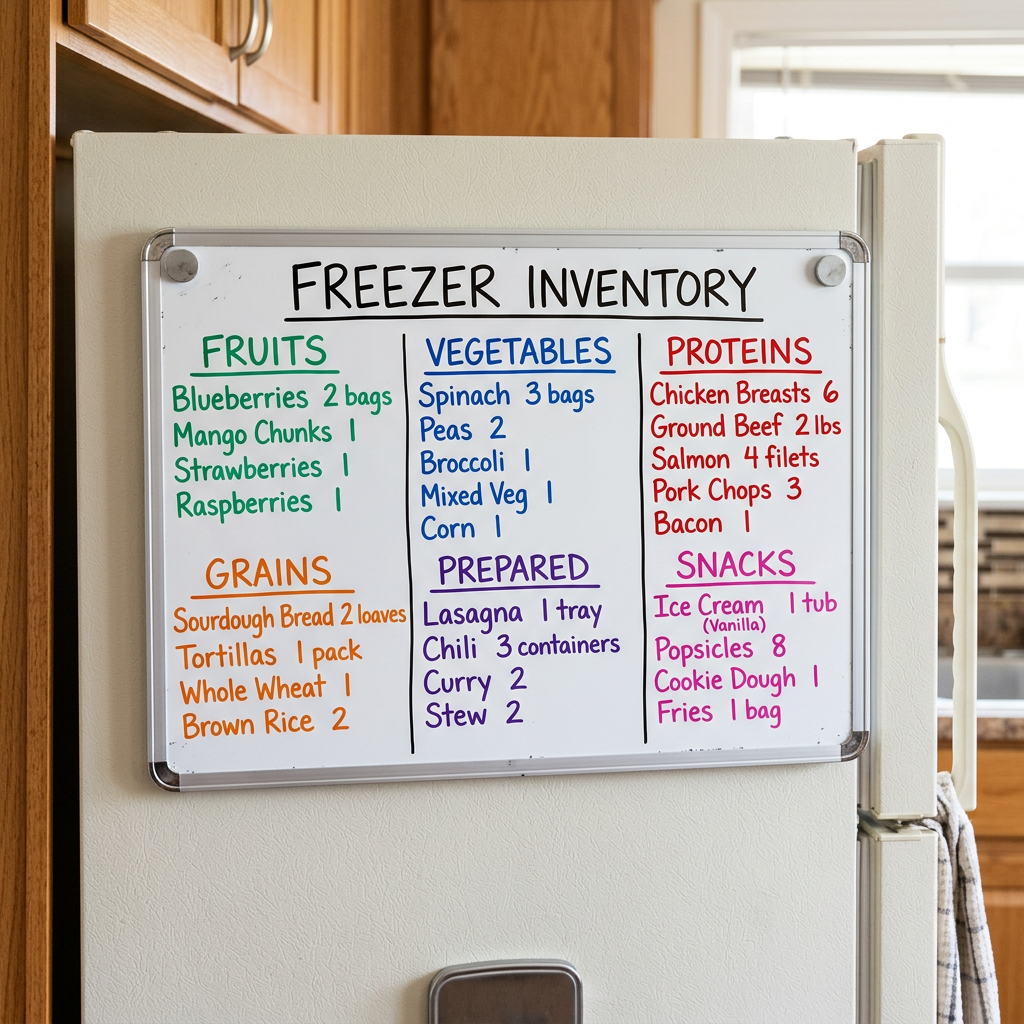 FREEZER INVENTORY
FRUITS
Blueberries 2 bags
Mango Chunks 1
Strawberries 1
Raspberries 1
VEGETABLES
Spinach 3 bags
Peas 2
Broccoli 1
Mixed Veg 1
Corn 1
PROTEINS
Chicken Breasts 6
Ground Beef 2 lbs
Salmon 4 filets
Pork Chops 3
Bacon 1
GRAINS
Sourdough Bread 2 loaves
Tortillas 1 pack
Whole Wheat 1
Brown Rice 2
PREPARED
Lasagna 1 tray
Chili 3 containers
Curry 2
Stew 2
SNACKS
Ice Cream 1 tub
(Vanilla)
Popsicles 8
Cookie Dough 1
Fries 1 bag